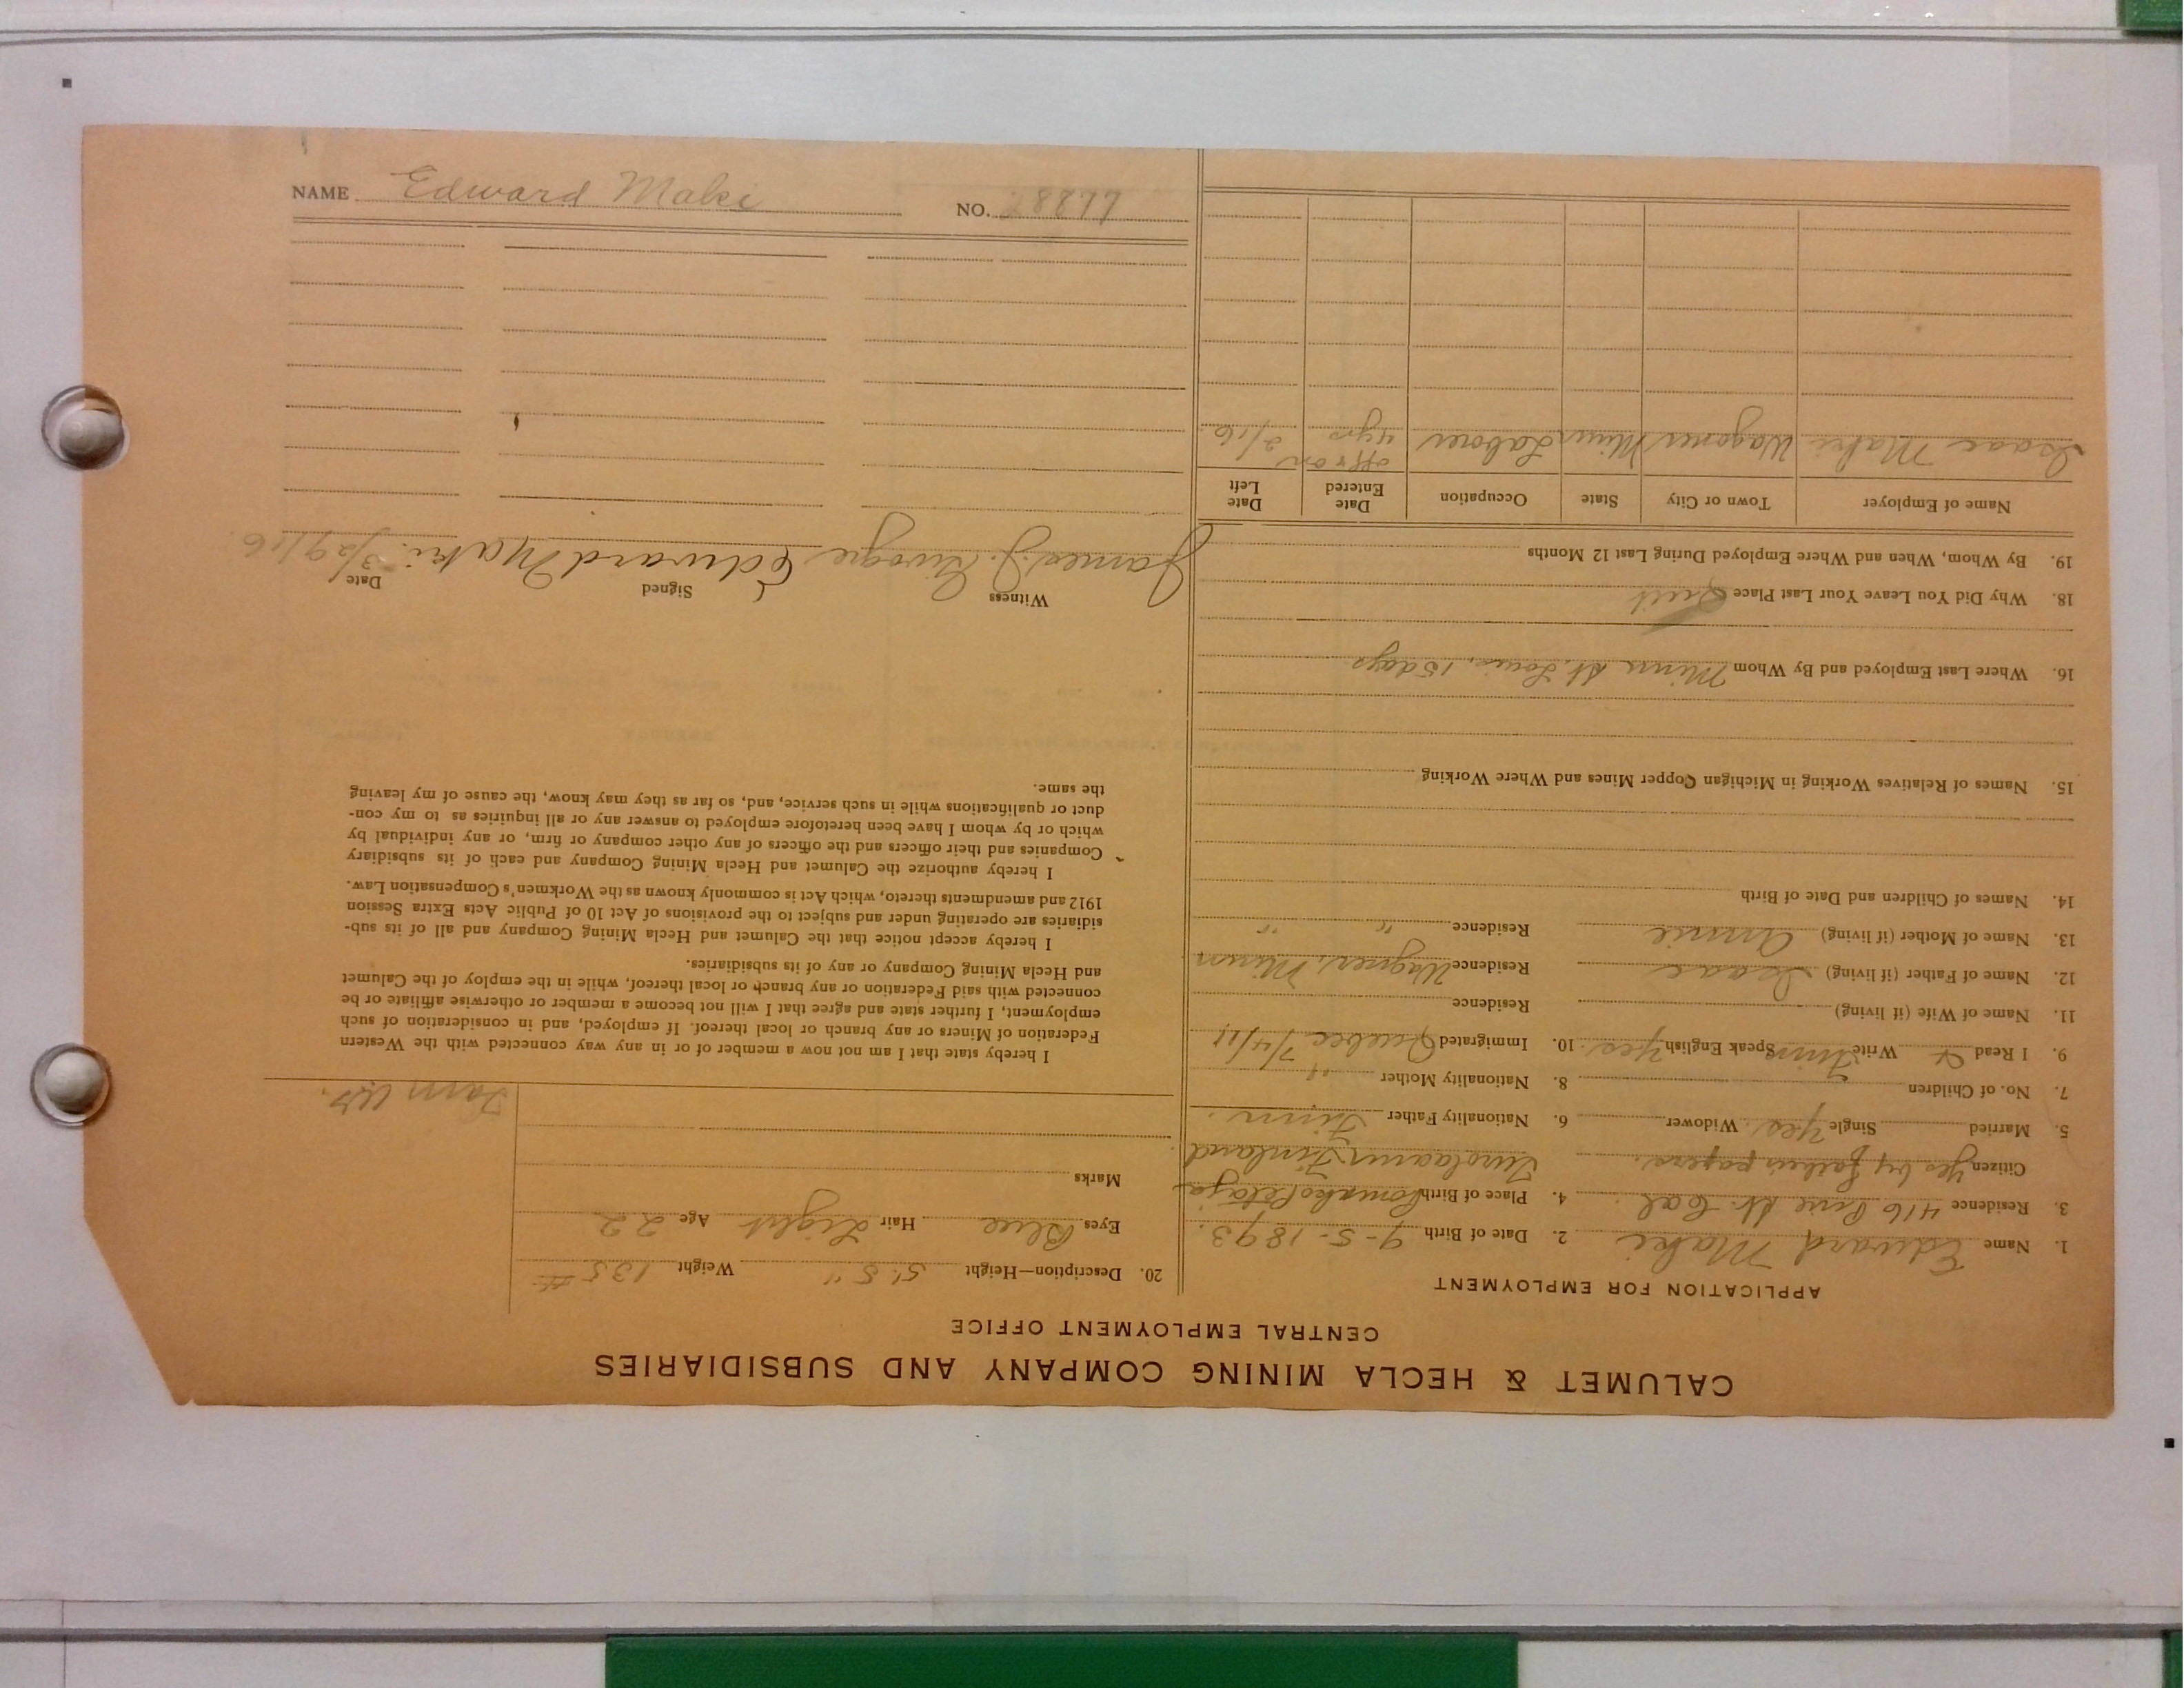 NAME Edward Maki NO. 28877
CALUMET & HECLA MINING COMPANY AND SUBSIDIARIES
CENTRAL EMPLOYMENT OFFICE
APPLICATION FOR EMPLOYMENT
1. Name Edward Maki 2. Date of Birth 9-5-1893.
3. Residence 416 Pine St. Cal. 4. Place of Birth
Citizen Yes by father's papers. Finland
5. Married Single Yes. Widower 6. Nationality Father Finn.
7. No. of Children 8. Nationality Mother "
9. I Read & Write Finn Speak English Yes. 10. Immigrated Quebec 7/4/11
11. Name of Wife (if living) Residence
12. Name of Father (if living) Isaac Residence Wagner, Minn
13. Name of Mother (if living) Annie Residence " "
14. Names of Children and Date of Birth
15. Names of Relatives Working in Michigan Copper Mines and Where Working
16. Where Last Employed and By Whom Minn St. Louis, 15 days
18. Why Did You Leave Your Last Place Quit
19. By Whom, When and Where Employed During Last 12 Months
Name of Employer Town or City State Occupation Date Entered Date Left
Isaac Maki Wagoner Minn Laborer off & on 4 yrs 2/16
20. Description—Height 5' 5" Weight 135#
Eyes Blue Hair Light Age 22
Marks
I hereby state that I am not now a member of or in any way connected with the Western
Federation of Miners or any branch or local thereof. If employed, and in consideration of such
employment, I further state and agree that I will not become a member or otherwise affiliate or be
connected with said Federation or any branch or local thereof, while in the employ of the Calumet
and Hecla Mining Company or any of its subsidiaries.
I hereby accept notice that the Calumet and Hecla Mining Company and all of its sub-
sidiaries are operating under and subject to the provisions of Act 10 of Public Acts Extra Session
1912 and amendments thereto, which Act is commonly known as the Workmen's Compensation Law.
I hereby authorize the Calumet and Hecla Mining Company and each of its subsidiary
Companies and their officers and the officers of any other company or firm, or any individual by
which or by whom I have been heretofore employed to answer any or all inquiries as to my con-
duct or qualifications while in such service, and, so far as they may know, the cause of my leaving
the same.
Witness Signed Date
James J. Edward Maki. 3/29/16.